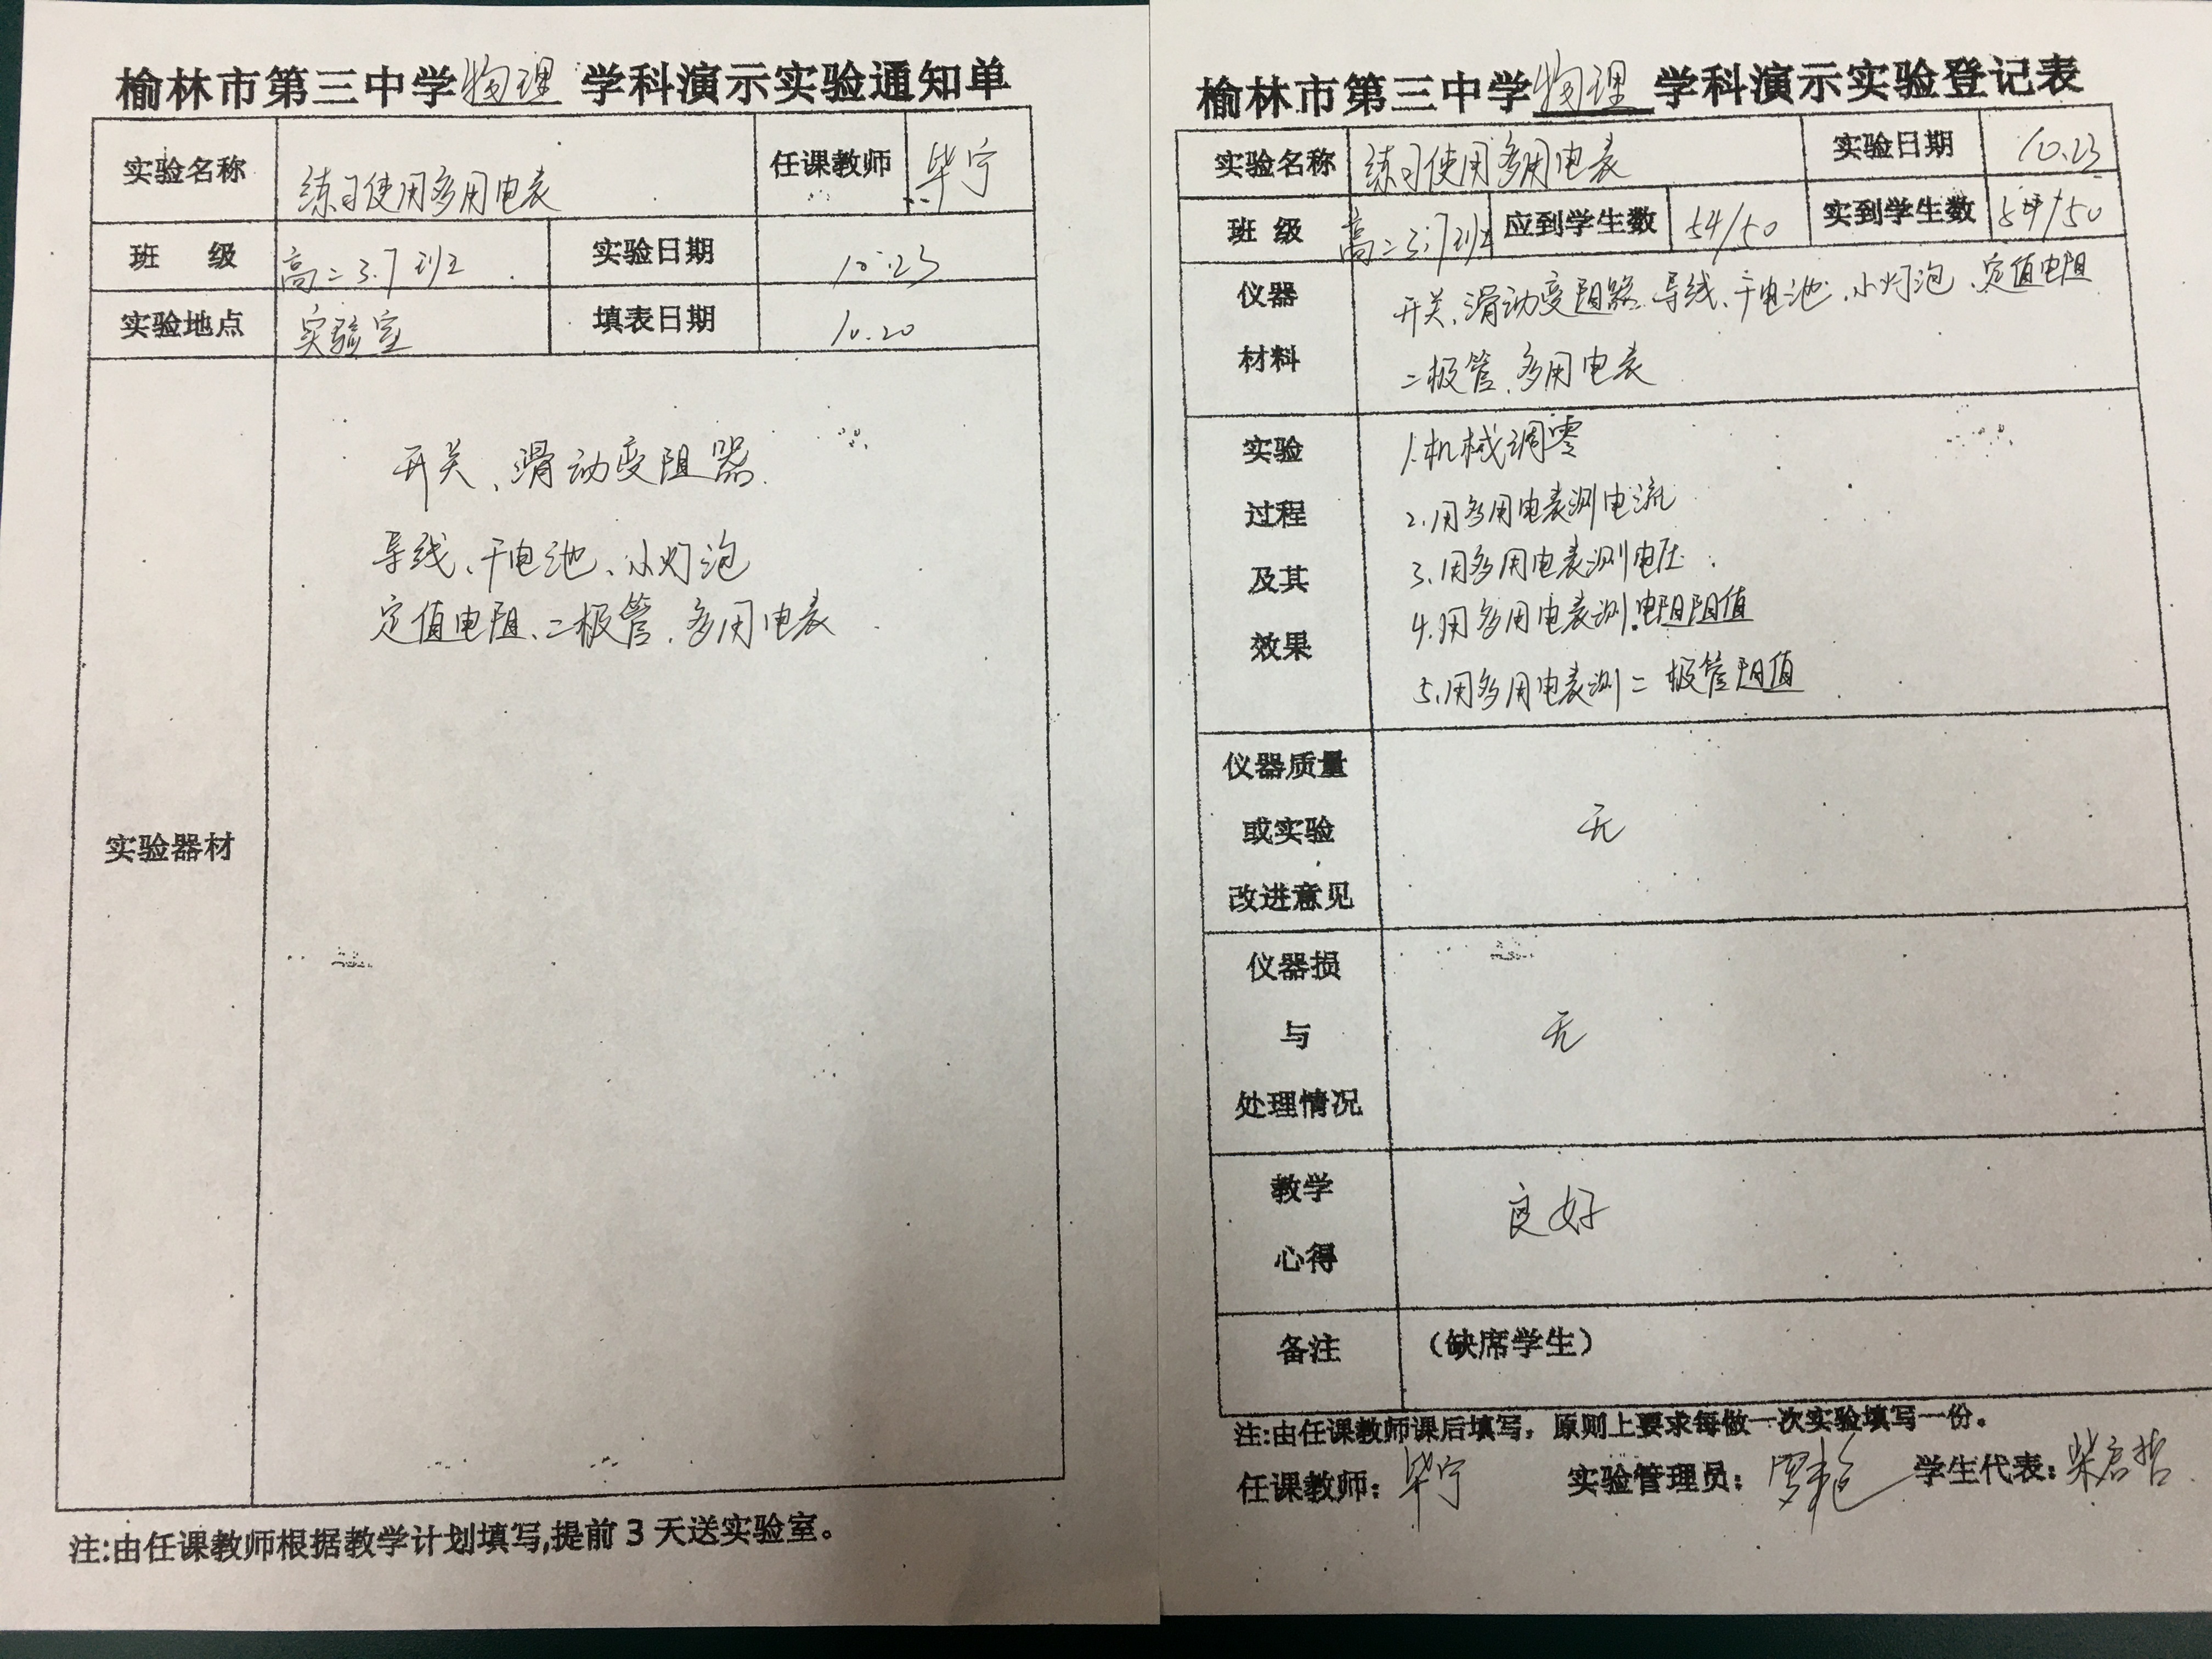 榆林市第三中学物理学科演示实验通知单
实验名称 练习使用多用电表 任课教师 毕宁
班 级 高二3.7班 实验日期 10.23
实验地点 实验室 填表日期 10.20
实验器材
开关、滑动变阻器
导线、干电池、小灯泡
定值电阻、二极管、多用电表
注:由任课教师根据教学计划填写,提前3天送实验室。
榆林市第三中学物理学科演示实验登记表
实验名称 练习使用多用电表 实验日期 10.23
班 级 高二3.7班 应到学生数 54/50 实到学生数 54/50
仪器材料
开关、滑动变阻器、导线、干电池、小灯泡、定值电阻
二极管、多用电表
实验过程及其效果
1.机械调零
2.用多用电表测电流
3.用多用电表测电压
4.用多用电表测电阻阻值
5.用多用电表测二极管阻值
仪器质量或实验改进意见 无
仪器损与处理情况 无
教学心得 良好
备注 （缺席学生）
注:由任课教师课后填写，原则上要求每做一次实验填写一份。
任课教师：毕宁 实验管理员： 学生代表：柴启哲